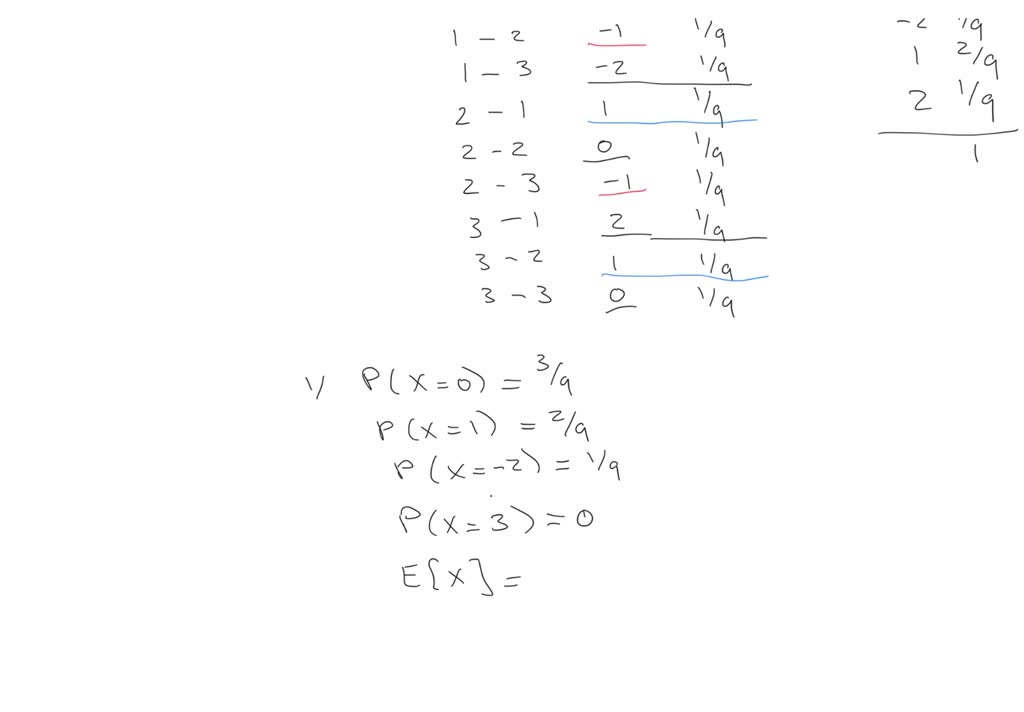 1 - 2 -1 1/9
1 - 3 -2 1/9
2 - 1 1 1/9
2 - 2 0 1/9
2 - 3 -1 1/9
3 - 1 2 1/9
3 - 2 1 1/9
3 - 3 0 1/9
-2 1/9
1 2/9
2 1/9
1
1) P(X=0) = 3/9
P(X=1) = 2/9
P(X=-2) = 1/9
P(X=3) = 0
E[X] =